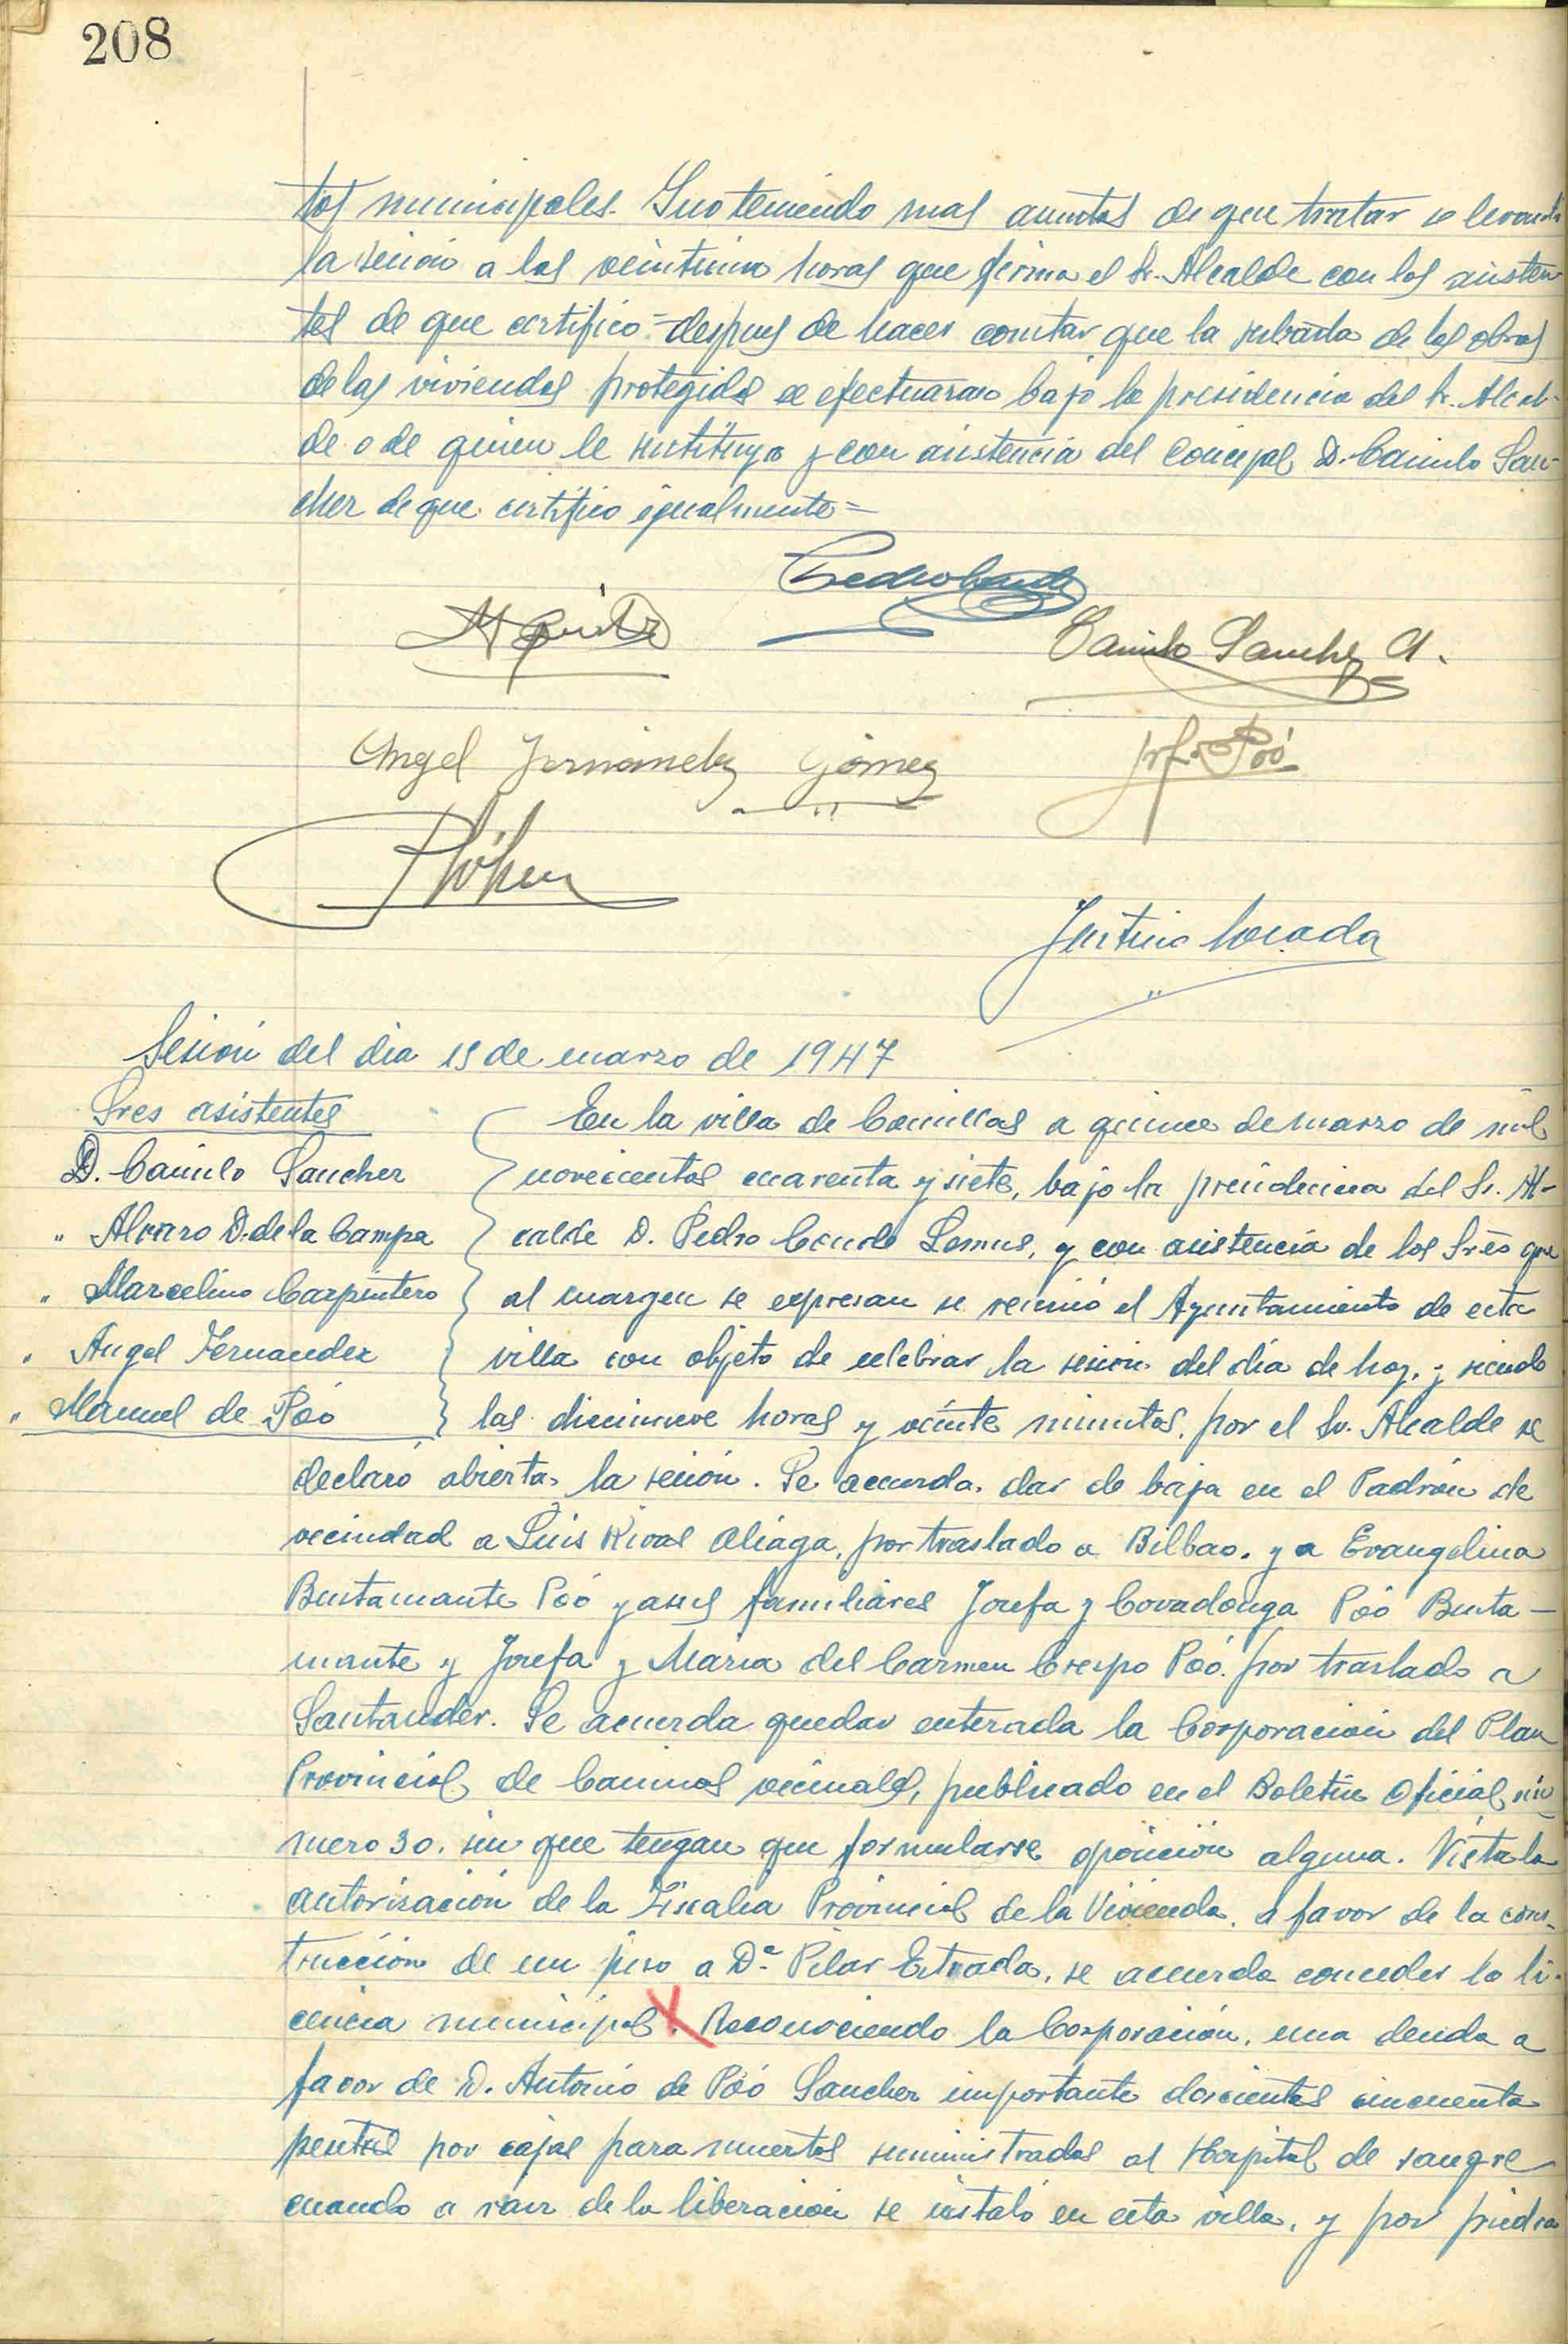 208
tos municipales. Y no teniendo mas asuntos de que tratar se levantó
la sesion a las veintiuna horas que firma el Sr. Alcalde con los asisten
tes de que certifico = despues de hacer constar que la subasta de las obras
de las viviendas protegidas se efectuaran bajo la presidencia del Sr. Alcal-
de o de quien le sustituya y con asistencia del Concejal D. Camilo San-
chez de que certifico igualmente =
Pedro Conde
Camilo Sanchez A.
Angel Fernández Gómez
Poó
Justino Losada
Sesion del dia 15 de marzo de 1947
Sres asistentes
D. Camilo Sanchez
" Alvaro D. de la Campa
" Marcelino Carpintero
" Angel Fernandez
" Manuel de Poó
En la villa de Comillas a quince de marzo de mil
novecientos cuarenta y siete, bajo la presidencia del Sr. Al-
calde D. Pedro Conde Lemus, y con asistencia de los Sres que
al margen se expresan se reunió el Ayuntamiento de esta
villa con objeto de celebrar la sesion del dia de hoy, y siendo
las diecinueve horas y veinte minutos, por el Sr. Alcalde se
declaró abierta la sesión. Se acuerda dar de baja en el Padrón de
vecindad a Luis Rivas Aliaga, por traslado a Bilbao, y a Evangelina
Bustamante Poó y a sus familiares Josefa y Covadonga Poó Busta-
mante y Josefa y Maria del Carmen Crespo Poó por traslado a
Santander. Se acuerda quedar enterada la Corporación del Plan
Provincial de Caminos vecinales, publicado en el Boletin Oficial nú
mero 30, sin que tengan que formularse oposición alguna. Vista la
autorización de la Fiscalia Provincial de la Vivienda, a favor de la cons-
trucción de un piso a Dª Pilar Estrada, se acuerda conceder la li-
cencia municipal. Reconociendo la Corporación, una deuda a
favor de D. Antonio de Poó Sanchez importante doscientas cincuenta
pesetas por cajas para muertos suministradas al Hospital de sangre
cuando a raiz de la liberación se instaló en esta villa, y por piedra